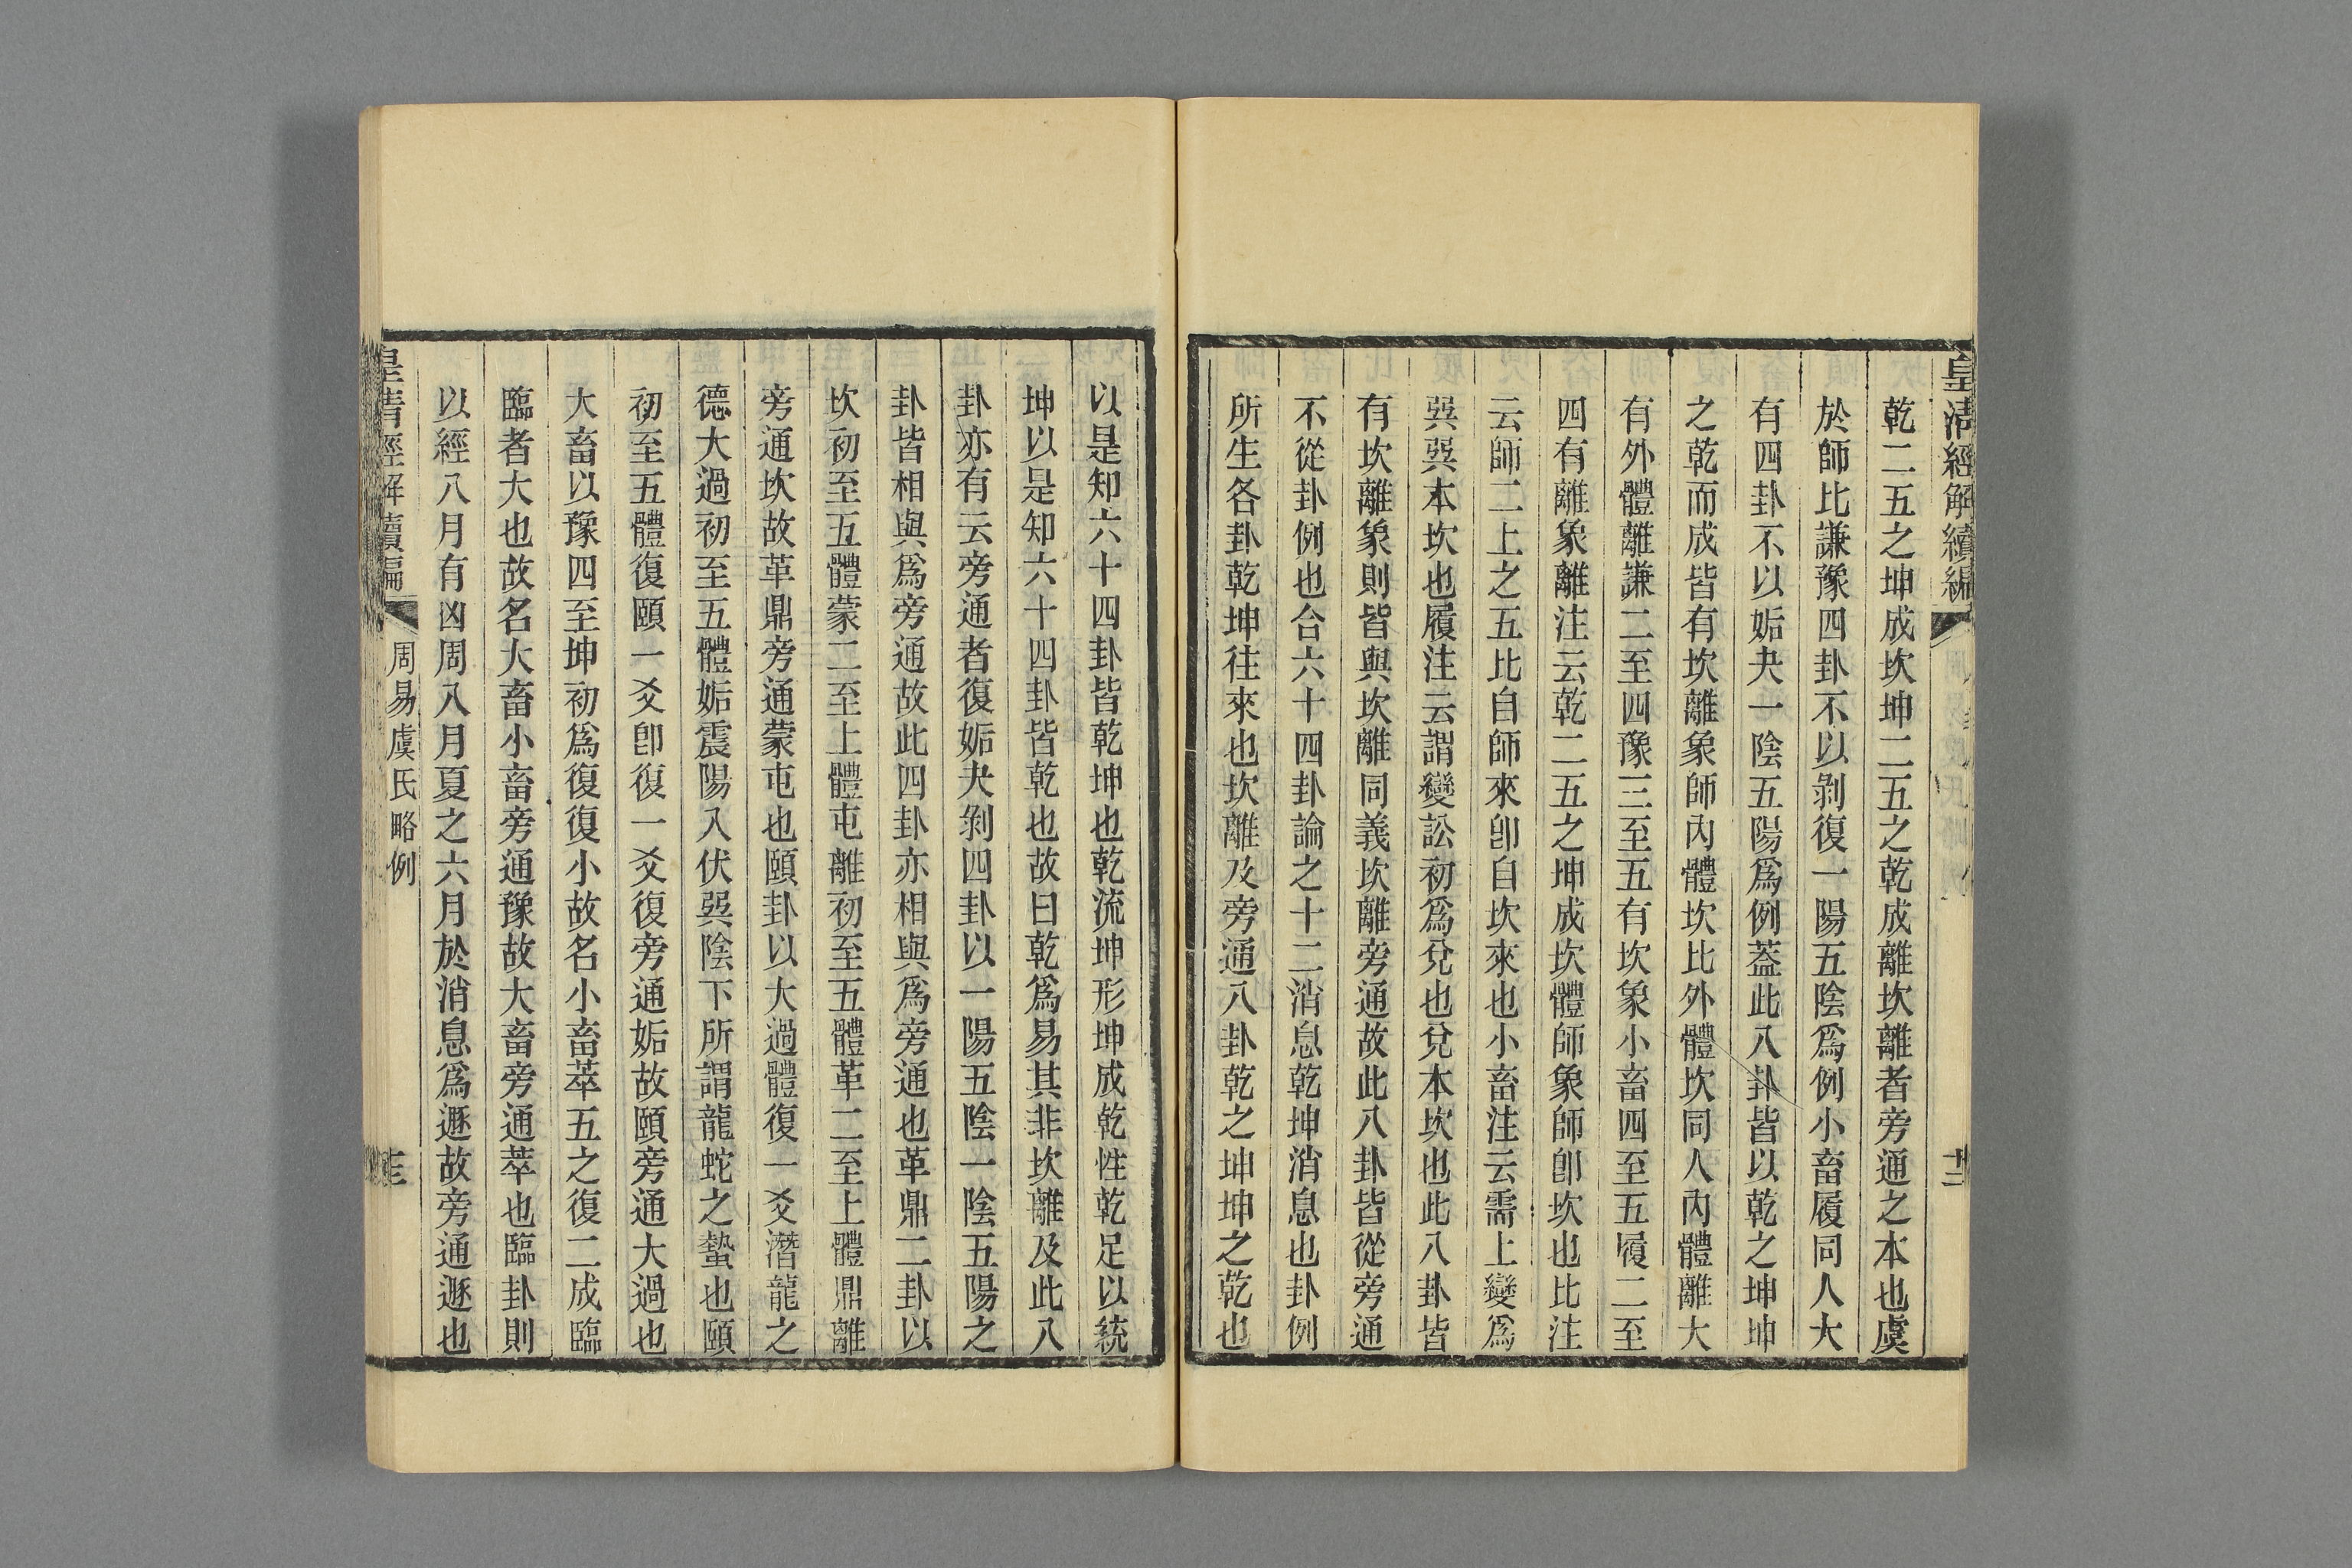 皇清經解續編
十二
乾二五之坤成坎坤二五之乾成離坎離者旁通之本也虞
於師比謙豫四卦不以剝復一陽五陰爲例小畜履同人大
有四卦不以姤夬一陰五陽爲例葢此八卦皆以乾之坤坤
之乾而成皆有坎離象師內體坎比外體坎同人內體離大
有外體離謙二至四豫三至五有坎象小畜四至五履二至
四有離象離注云乾二五之坤成坎體師象師卽坎也比注
云師二上之五比自師來卽自坎來也小畜注云需上變爲
巽巽本坎也履注云謂變訟初爲兌也兌本坎也此八卦皆
有坎離象則皆與坎離同義坎離旁通故此八卦皆從旁通
不從卦例也合六十四卦論之十二消息乾坤消息也卦例
所生各卦乾坤往來也坎離及旁通八卦乾之坤坤之乾也
以是知六十四卦皆乾坤也乾流坤形坤成乾性乾足以統
坤以是知六十四卦皆乾也故曰乾爲易其非坎離及此八
卦亦有云旁通者復姤夬剝四卦以一陽五陰一陰五陽之
卦皆相與爲旁通故此四卦亦相與爲旁通也革鼎二卦以
坎初至五體蒙二至上體屯離初至五體革二至上體鼎離
旁通坎故革鼎旁通蒙屯也頤卦以大過體復一爻潛龍之
德大過初至五體姤震陽入伏巽陰下所謂龍蛇之蟄也頤
初至五體復頤一爻卽復一爻復旁通姤故頤旁通大過也
大畜以豫四至坤初爲復復小故名小畜萃五之復二成臨
臨者大也故名大畜小畜旁通豫故大畜旁通萃也臨卦則
以經八月有凶周八月夏之六月於消息爲遯故旁通遯也
皇清經解續編
周易虞氏略例
十三